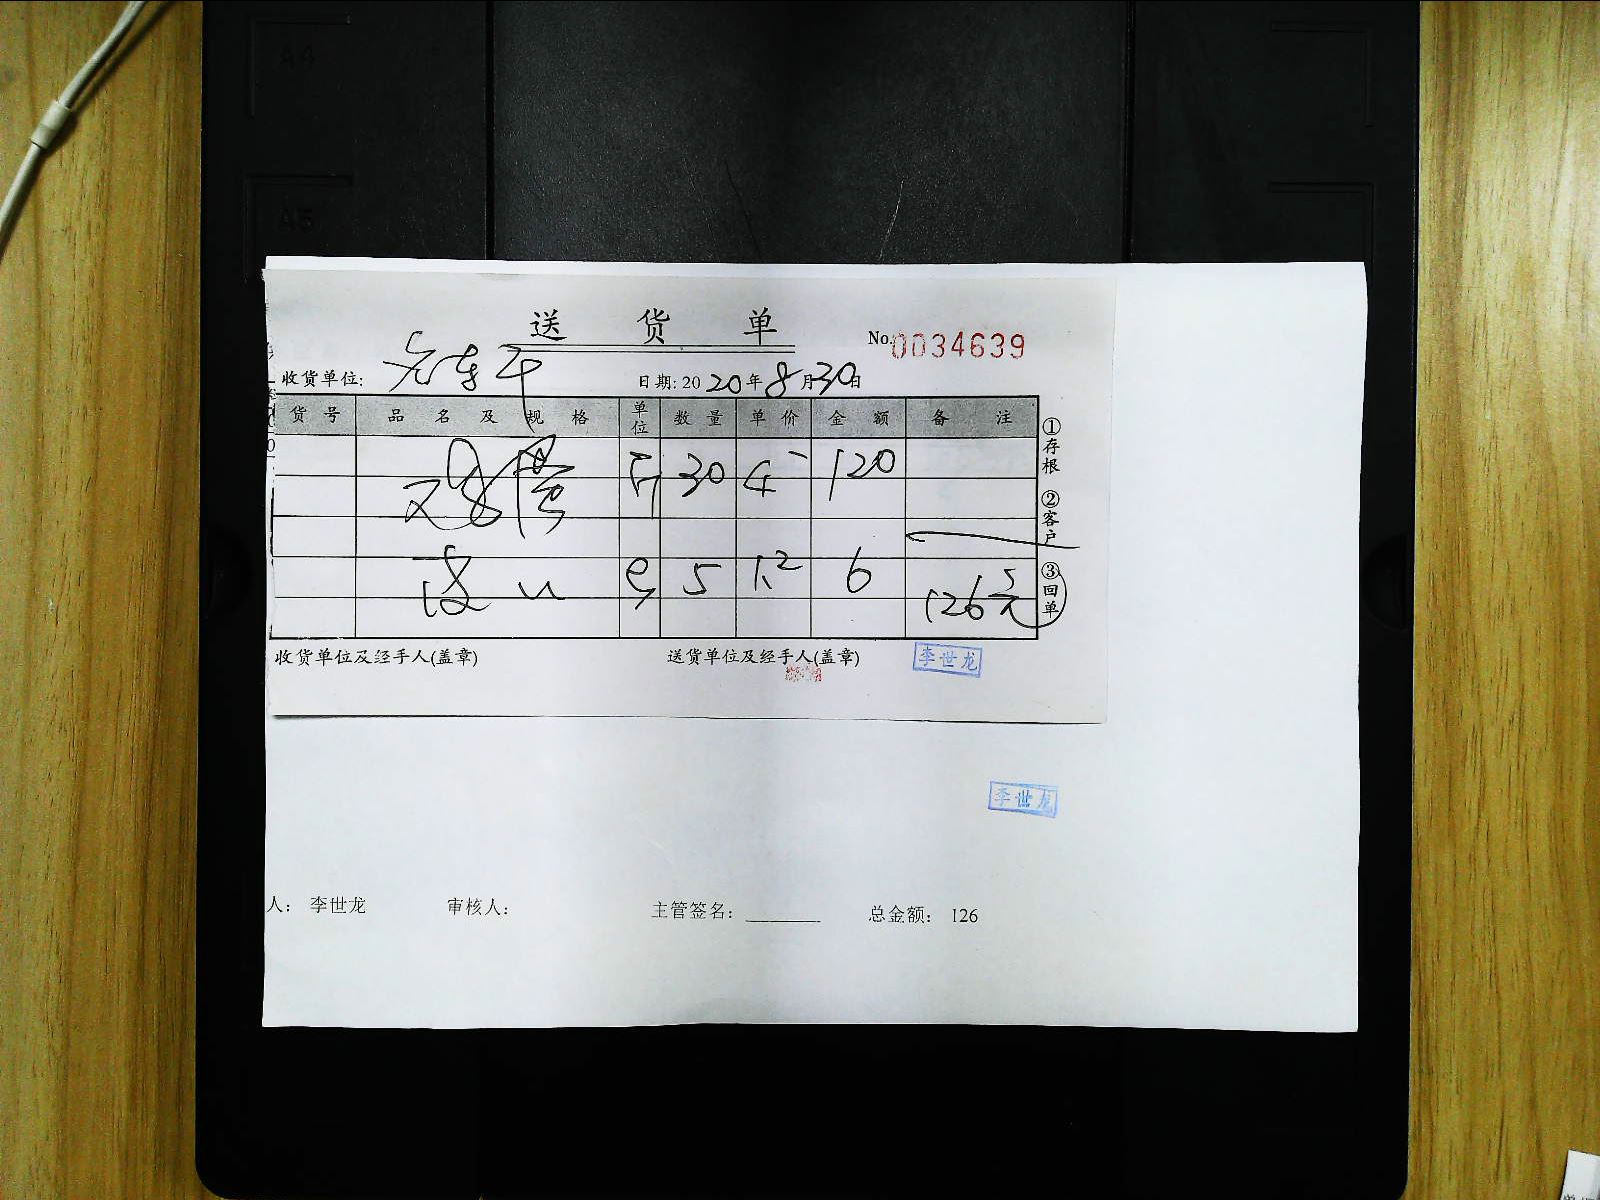 A4
A5
送货单
No.0034639
收货单位:
日期: 2020年8月30日
货号 品名及规格 单位 数量 单价 金额 备注
30 4 120
5 1.2 6
126元
①存根 ②客户 ③回单
收货单位及经手人(盖章) 送货单位及经手人(盖章) 李世龙
李世龙
人： 李世龙 审核人： 主管签名： 总金额： 126